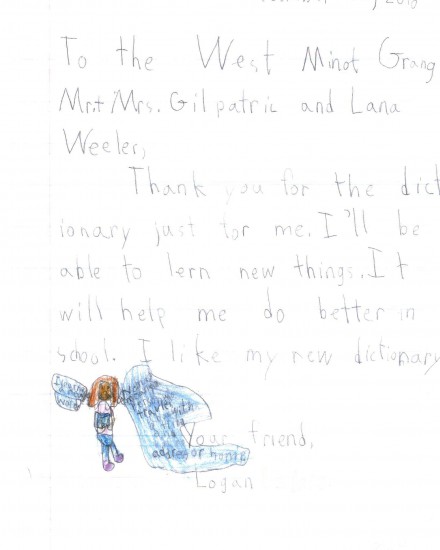 2010
To the West Minot Grang
Mr.+Mrs. Gilpatric and Lana
Weeler,
Thank you for the dict
ionary just for me. I'll be
able to lern new things. It
will help me do better in
school. I like my new dictionary
with
address or home
Your friend,
Logan